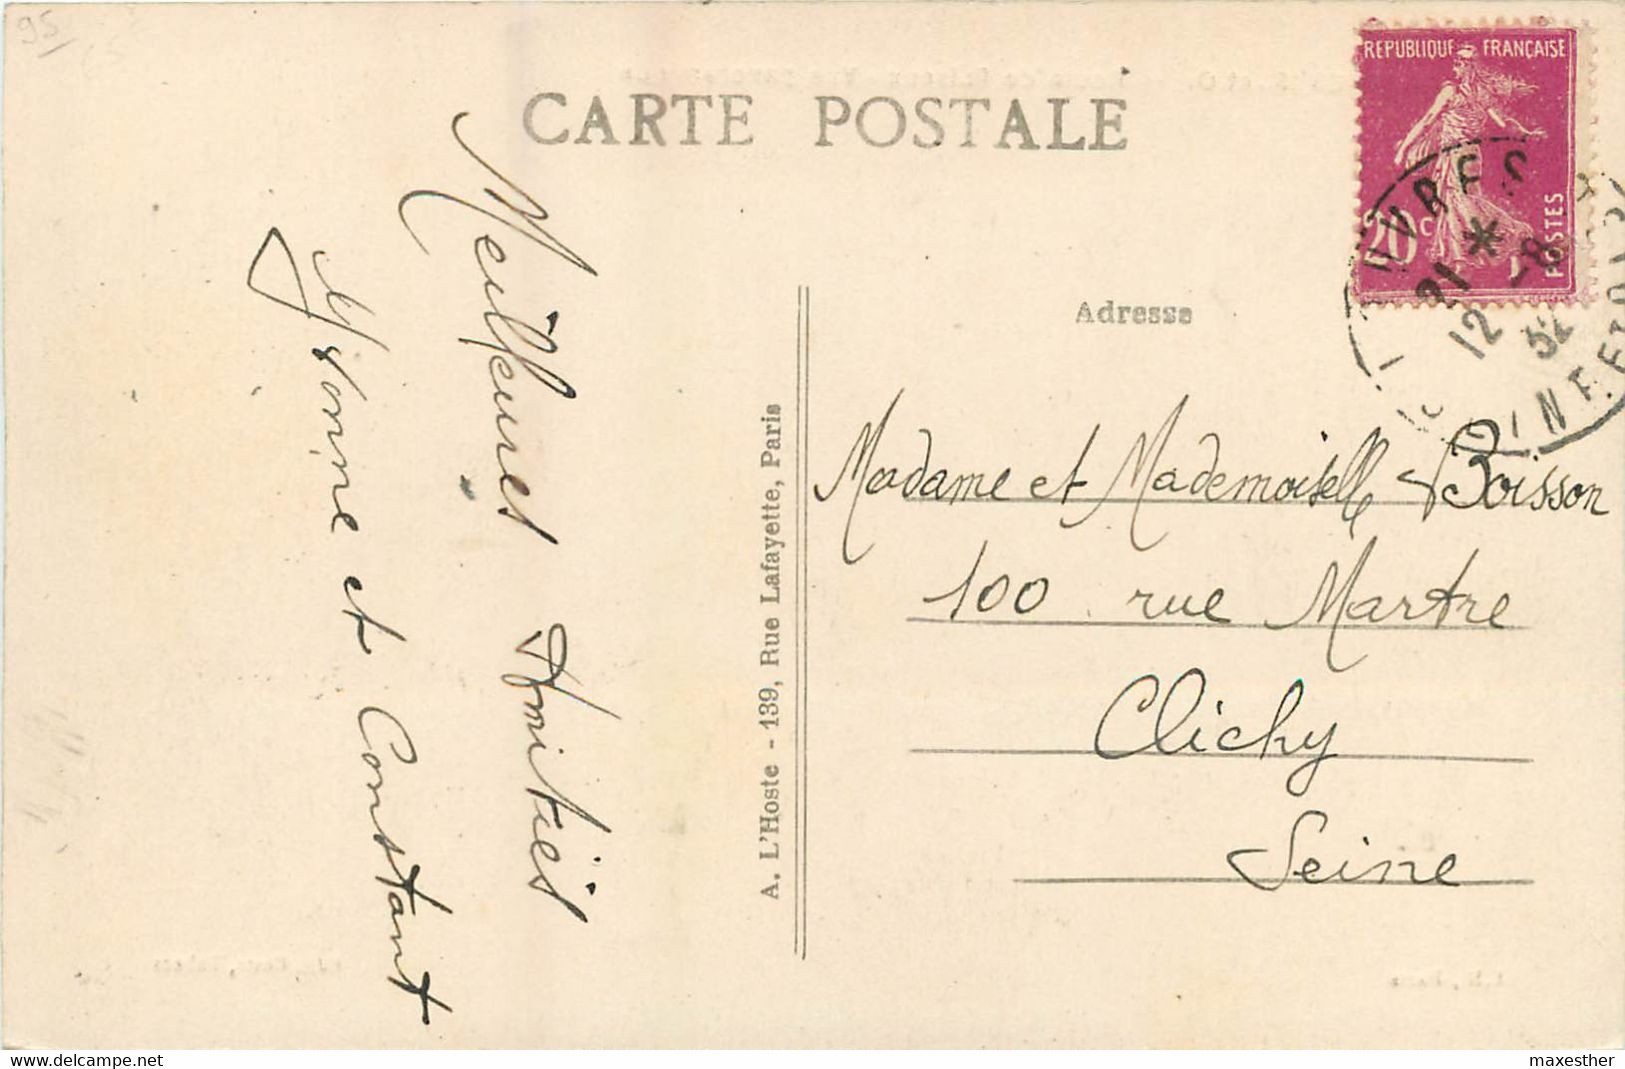 95
CARTE POSTALE
REPUBLIQUE FRANÇAISE
20c
POSTES
21 * -8
12 32
Adresse
Meilleures Amitiés
Yvonne et Constant
A. L'Hoste - 139, Rue Lafayette, Paris
Madame et Mademoiselle Boisson
100 rue Martre
Clichy
Seine
www.delcampe.net
maxesther